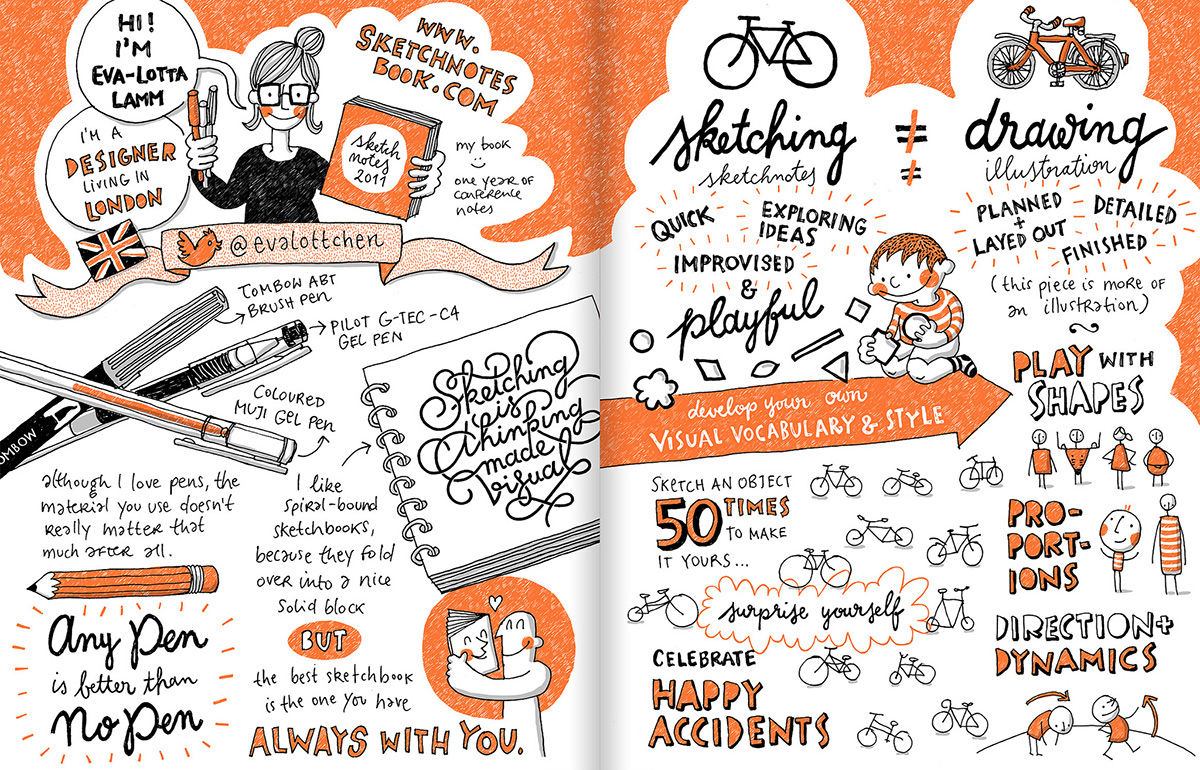 HI!
I'M
EVA-LOTTA
LAMM
I'M A
DESIGNER
LIVING IN
LONDON
WWW.
SKETCHNOTES
BOOK.COM
sketch
notes
2011
my book
one year of
conference
notes
@evalottchen
TOMBOW ABT
BRUSH PEN
PILOT G-TEC-C4
GEL PEN
COLOURED
MUJI GEL PEN
TOMBOW
Sketching
is
thinking
made
visual
although I love pens, the
material you use doesn't
really matter that
much after all.
I like
spiral-bound
sketchbooks,
because they fold
over into a nice
solid block
Any Pen
is better than
No Pen
BUT
the best sketchbook
is the one you have
ALWAYS WITH YOU.
sketching ≠ drawing
sketchnotes ≠ illustration
QUICK
EXPLORING
IDEAS
IMPROVISED
&
playful
PLANNED
+
LAYED OUT
DETAILED
FINISHED
(this piece is more of
an illustration)
develop your own
VISUAL VOCABULARY & STYLE
SKETCH AN OBJECT
50 TIMES
TO MAKE
IT YOURS...
surprise yourself
CELEBRATE
HAPPY
ACCIDENTS
PLAY WITH
SHAPES
PRO-
PORT-
IONS
DIRECTION+
DYNAMICS